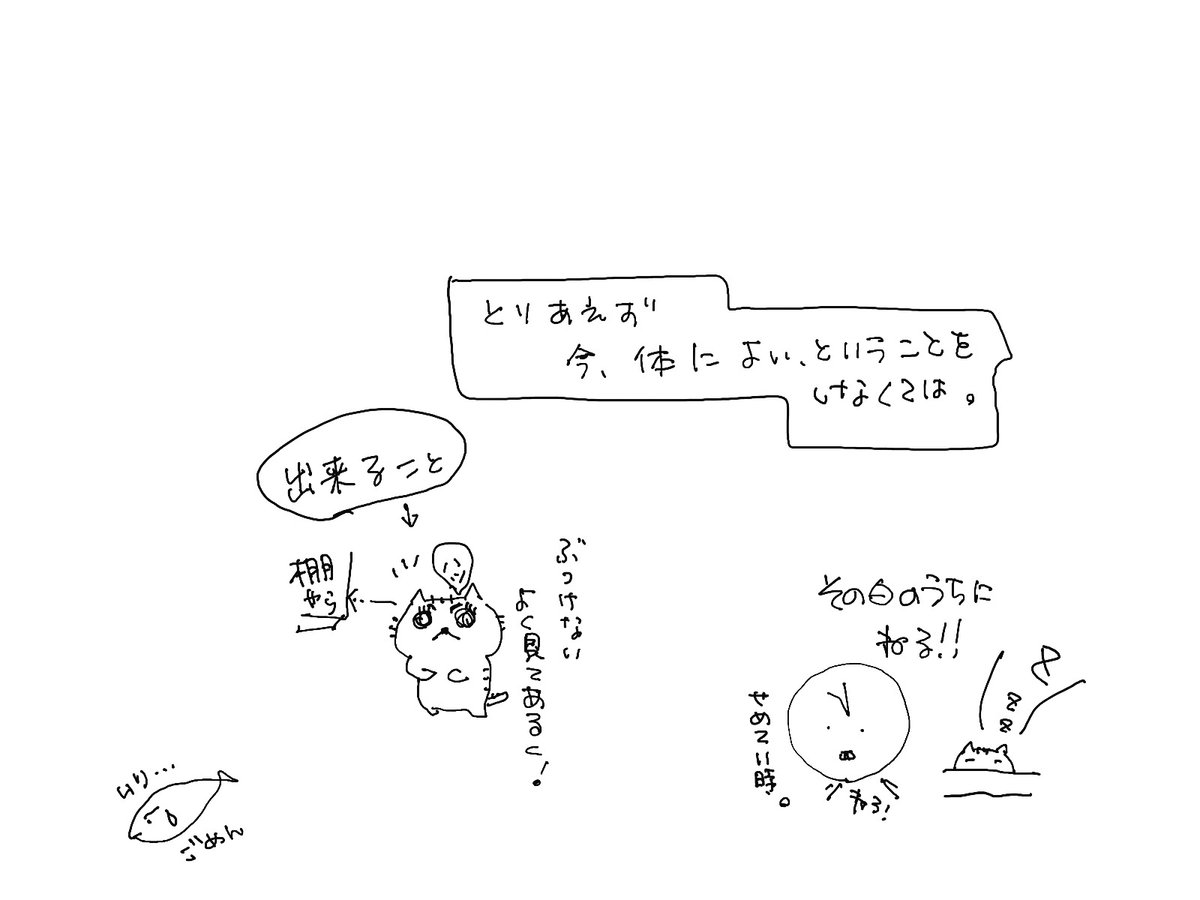 とりあえず
今、体によい、ということを
しなくては。
出来ること
棚
やら
ぶつけない
よく見てあるく!
その日のうちに
ねる!!
せめてい時。
ねる!
ごめん